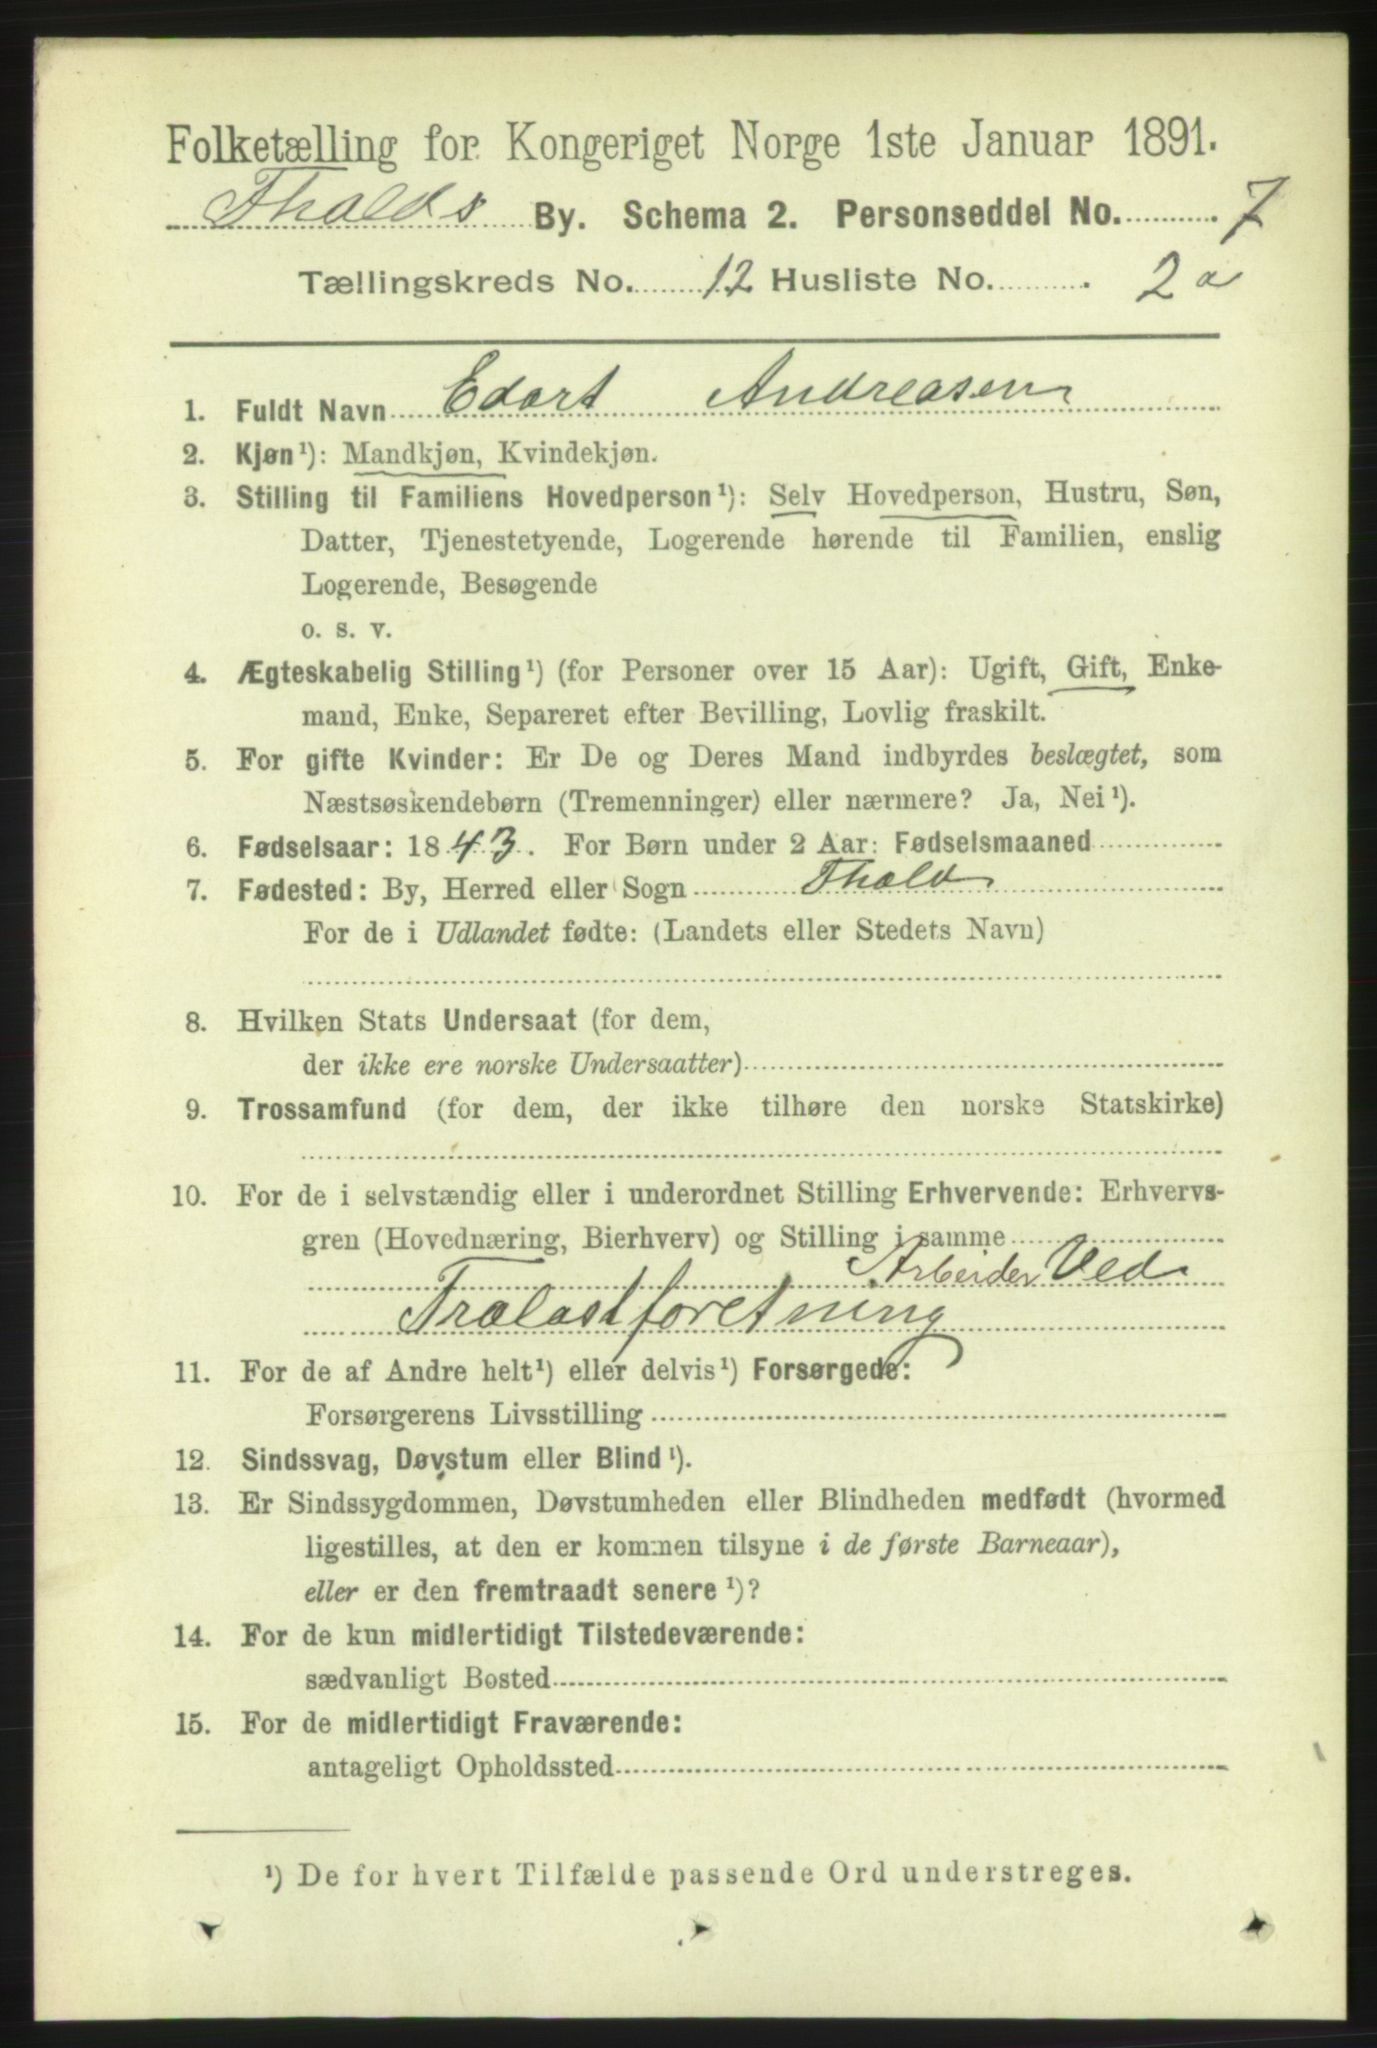 Folketælling for Kongeriget Norge 1ste Januar 1891.
Fhalds By. Schema 2. Personseddel No. 7
Tællingskreds No. 12 Husliste No. 2 a
1. Fuldt Navn Edart Andreasen
2. Kjøn¹): Mandkjøn, Kvindekjøn.
3. Stilling til Familiens Hovedperson¹): Selv Hovedperson, Hustru, Søn,
Datter, Tjenestetyende, Logerende hørende til Familien, enslig
Logerende, Besøgende
o. s. v.
4. Ægteskabelig Stilling¹) (for Personer over 15 Aar): Ugift, Gift, Enke-
mand, Enke, Separeret efter Bevilling, Lovlig fraskilt.
5. For gifte Kvinder: Er De og Deres Mand indbyrdes beslægtet, som
Næstsøskendebørn (Tremenninger) eller nærmere? Ja, Nei¹).
6. Fødselsaar: 1843. For Børn under 2 Aar: Fødselsmaaned
7. Fødested: By, Herred eller Sogn Fhald
For de i Udlandet fødte: (Landets eller Stedets Navn)
8. Hvilken Stats Undersaat (for dem,
der ikke ere norske Undersaatter)
9. Trossamfund (for dem, der ikke tilhøre den norske Statskirke)
10. For de i selvstændig eller i underordnet Stilling Erhvervende: Erhvervs-
gren (Hovednæring, Bierhverv) og Stilling i samme
Arbeider Ved
Trælastforetning
11. For de af Andre helt¹) eller delvis¹) Forsørgede:
Forsørgerens Livsstilling
12. Sindssvag, Døvstum eller Blind¹).
13. Er Sindssygdommen, Døvstumheden eller Blindheden medfødt (hvormed
ligestilles, at den er kommen tilsyne i de første Barneaar),
eller er den fremtraadt senere¹)?
14. For de kun midlertidigt Tilstedeværende:
sædvanligt Bosted
15. For de midlertidigt Fraværende:
antageligt Opholdssted
¹) De for hvert Tilfælde passende Ord understreges.